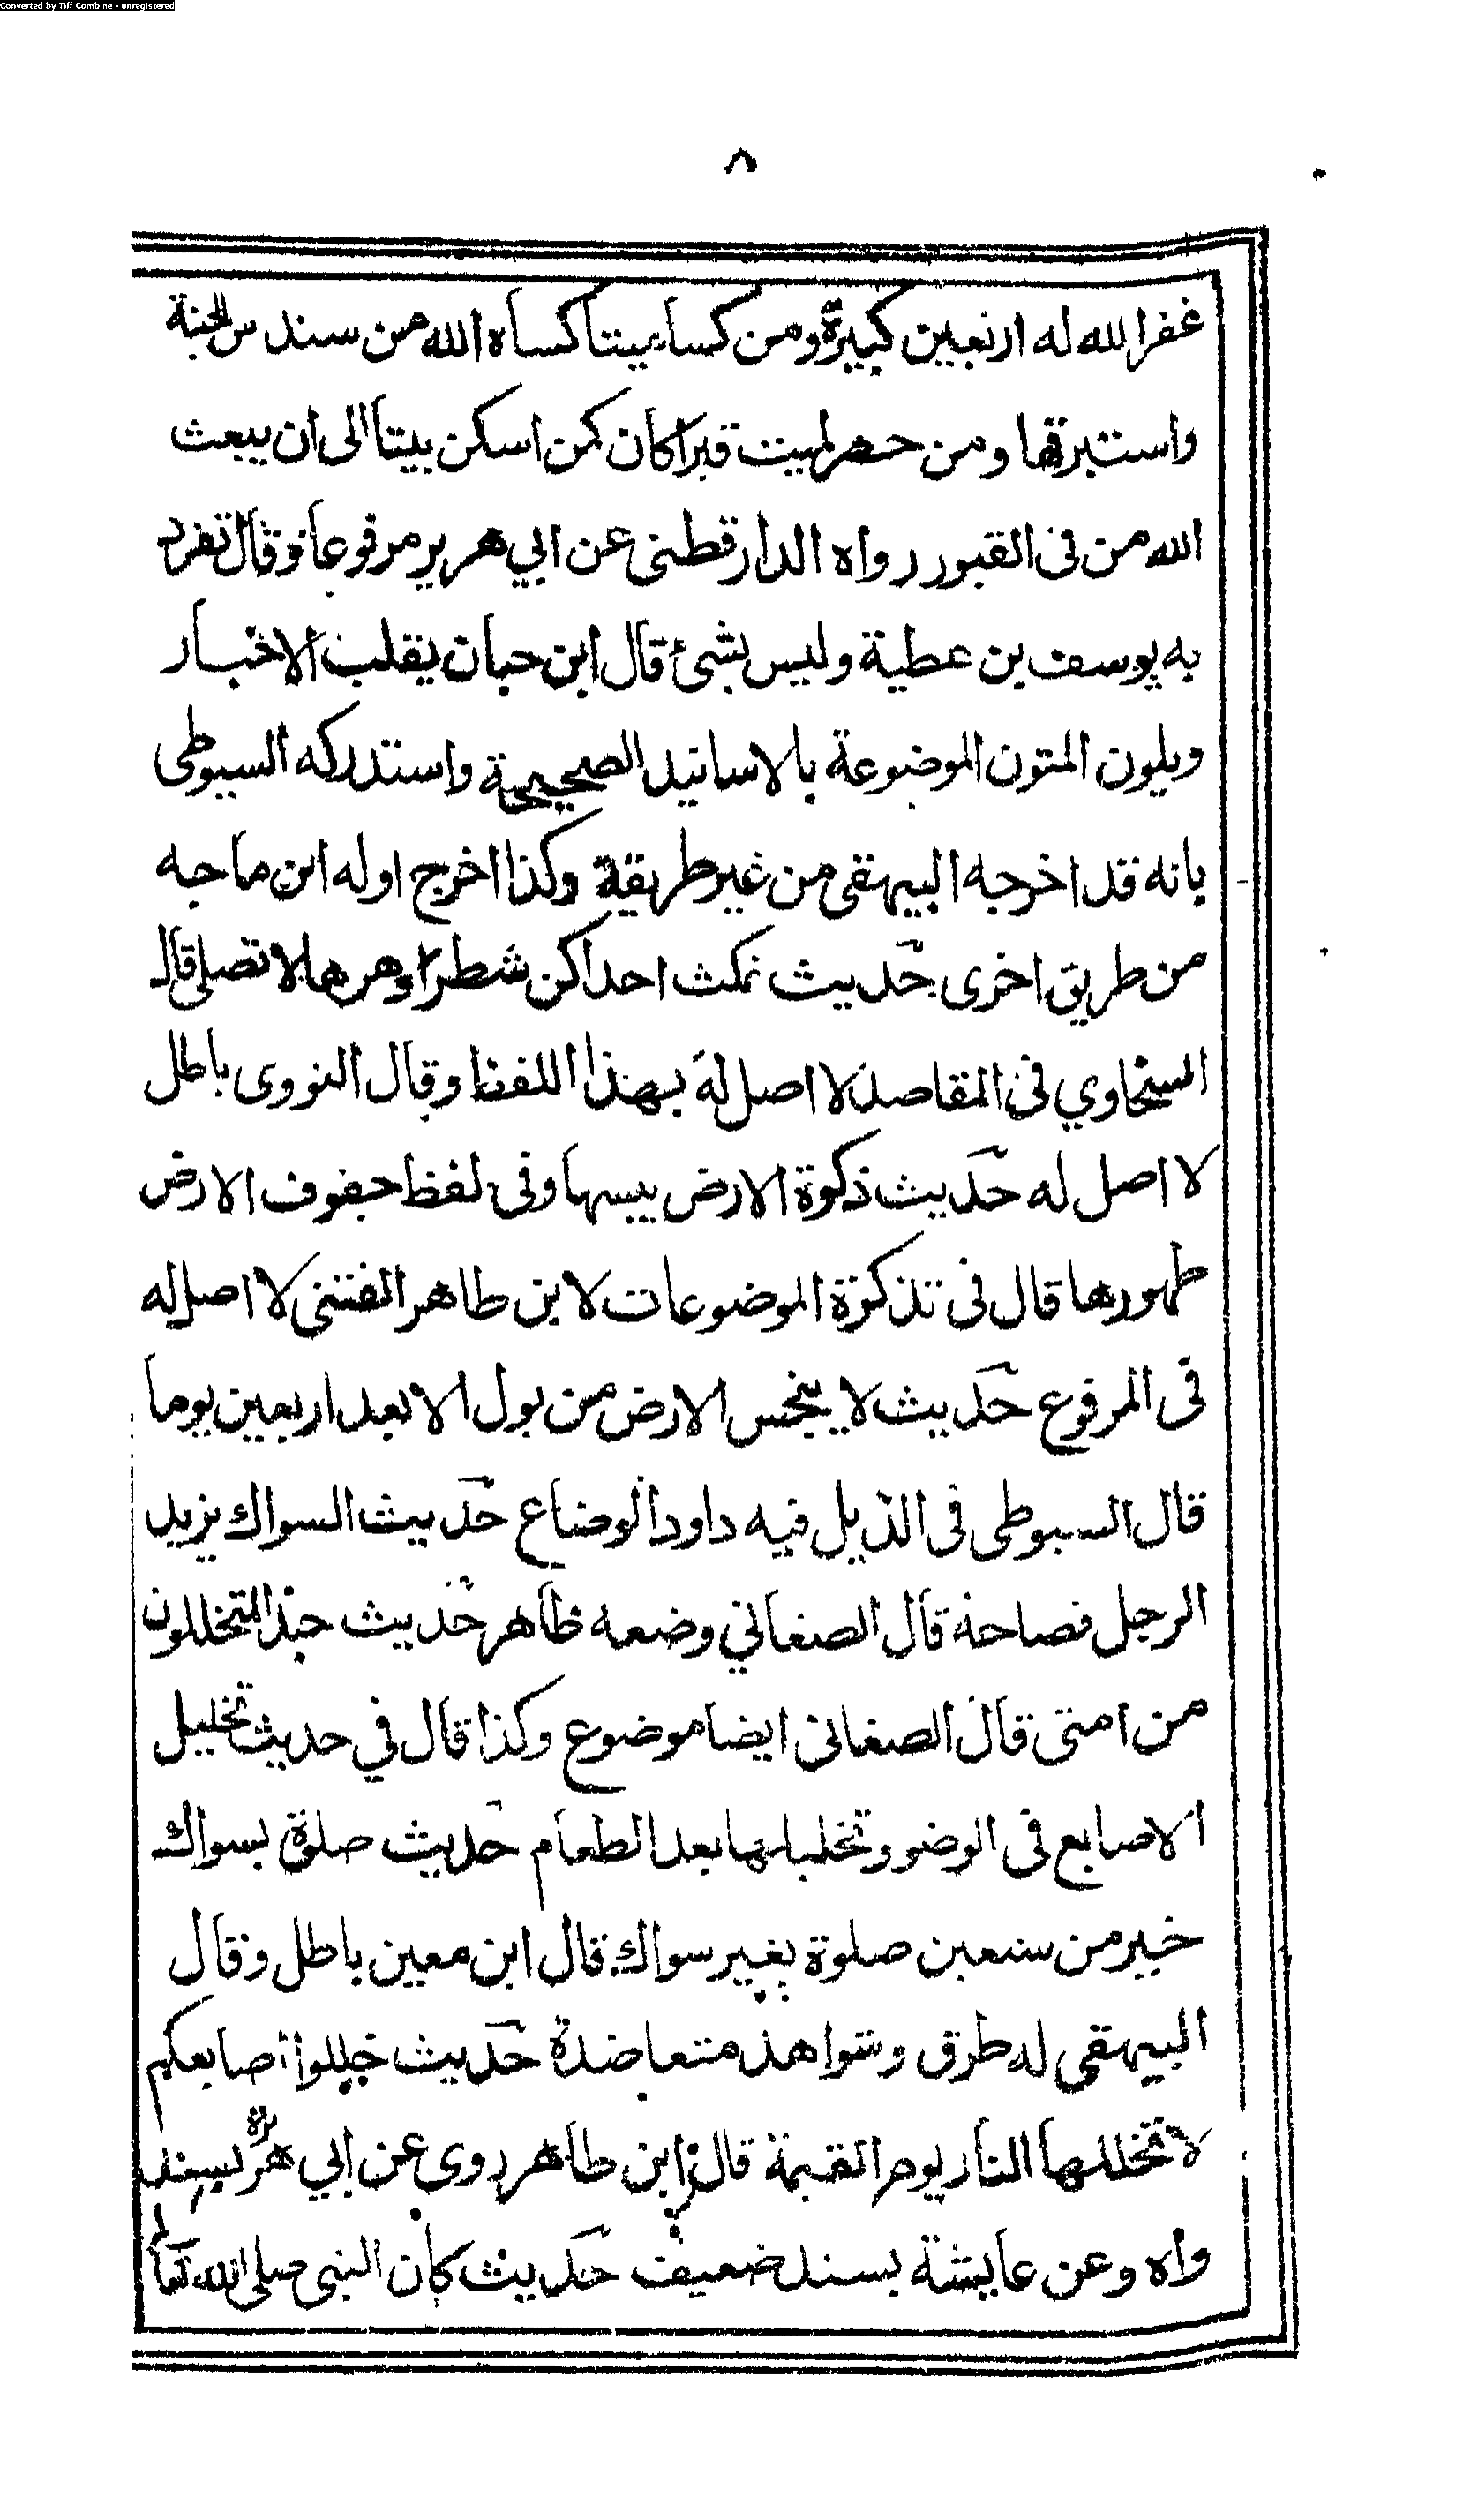 Converted by Tiff Combine - unregistered
٨
غفر الله له اربعين كبيرة ومن كسا ميتا كساه الله من سندس الجنة
واستبرقها ومن حفر لميت قبرا كان كمن اسكن بيتا الى ان يبعث
الله من فى القبور رواه الدارقطنى عن ابي هرير مرفوعا وقال تفرد
به يوسف بن عطية وليس بشئ قال ابن حبان يقلب الاخبار
ويلون المتون الموضوعة بالاسانيد الصحيحة واستدركه السيوطى
بانه قد اخرجه البيهقى من غير طريقة وكذا اخرج اوله ابن ماجه
من طريق اخرى حديث تمكث احداكن شطرا وهرها لا تصلى قال
السخاوي فى المقاصد لا اصل له بهذا اللفظ وقال النووى باطل
لا اصل له حديث ذكوة الارض يبسها وفى لفظ جفوف الارض
طهورها قال فى تذكرة الموضوعات لابن طاهر الفتنى لا اصل له
فى المرفوع حديث لا ينجس الارض من بول الا بعد اربعين يوما
قال السيوطى فى الذيل فيه داود الوضاع حديث السواك يزيد
الرجل فصاحة قال الصغاني وضعه ظاهر حديث حبذا المتخللون
من امتى قال الصغانى ايضا موضوع وكذا قال في حديث تخليل
الاصابع فى الوضو وتخليلها بعد الطعام حديث صلوة بسواك
خير من سبعين صلوة بغير سواك قال ابن معين باطل وقال
البيهقى له طرق وشواهد متعاضدة حديث خللوا اصابعكم
لا تخللها النار يوم القيمة قال ابن طاهر روى عن ابي هريرة بسند
واه وعن عايشة بسند ضعيف حديث كان النبى صلى الله تعالى